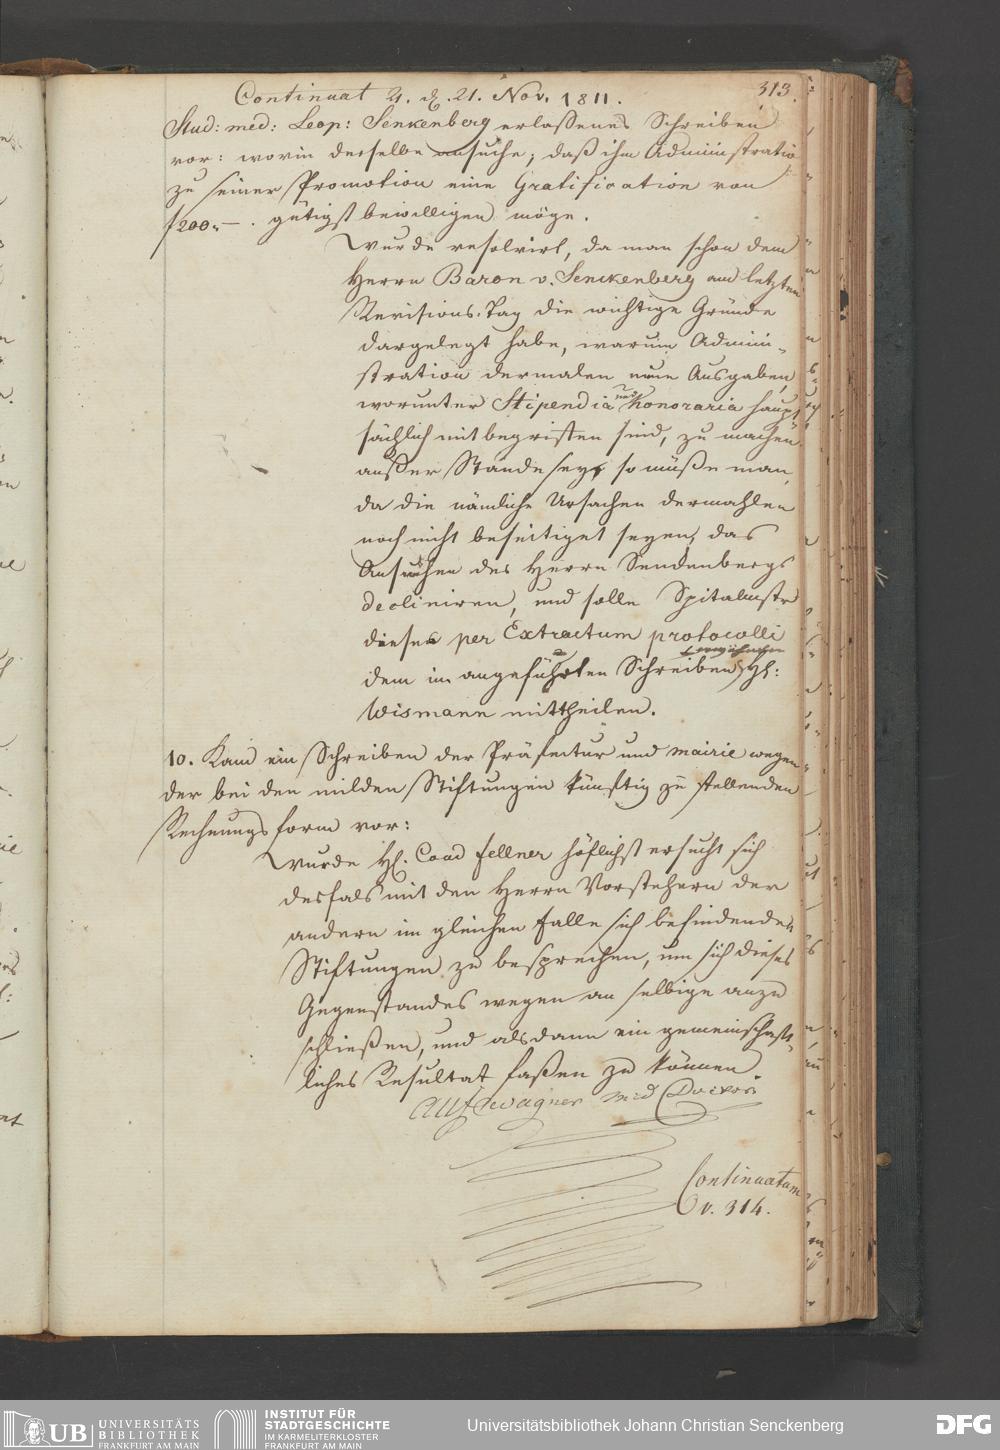 Continuat 4. d. 21. Nov. 1811.
313.
Stud: med: Leop: Senkenberg erlaßenes Schreiben
vor: worin derselbe ansuche, daß ihm Administratio
zu seiner Promotion eine Gratification von
f 200.- . gütigst bewilligen möge.
Wurde resolvirt, da man schon dem
Herrn Baron v. Senckenberg am letzten
Revisions-Tag die wichtige Gründe
dargelegt habe, warum Admini-
stration dermalen neue Ausgaben,
worunter Stipendia und Honoraria haupt
sächlich mitbegriffen sind, zu machen
außer Stande sey, so müße man,
da die nämliche Ursachen dermahlen
noch nicht beseitiget seyen, das
Ansuchen des Herrn Senckenbergs
decliniren, und solle Spitalmstr
dieses per Extractum protocolli
dem im angeführten Schreiben erwähnten Hl:
Wismann mittheilen.
10. Kam ein Schreiben der Präfectur und mairie wegen
der bei den milden Stiftungen künftig zu stellenden
Rechnungsform vor:
Wurde Hl. Coad Fellner höflichst ersucht sich
desfals mit den Herrn Vorstehern der
andern im gleichen Falle sich befindenden
Stiftungen zu besprechen, um sich dieses
Gegenstandes wegen an selbige anzu
schließen, und alsdann ein gemeinschaft-
liches Resultat faßen zu können.
med Doctor
Continuatum
v. 314.
UB UNIVERSITÄTS
BIBLIOTHEK
FRANKFURT AM MAIN
INSTITUT FÜR
STADTGESCHICHTE
IM KARMELITERKLOSTER
FRANKFURT AM MAIN
Universitätsbibliothek Johann Christian Senckenberg
DFG